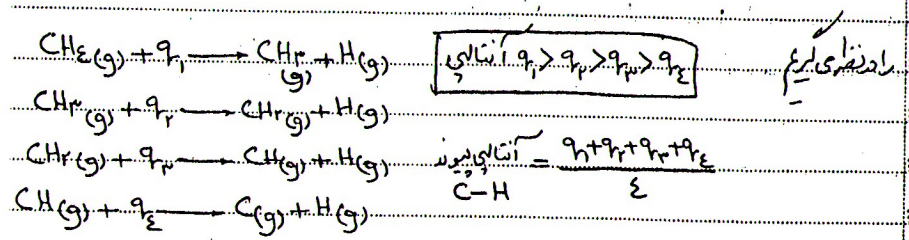 را در نظر می گیریم
CH٤(g) + q₁ → CH٣(g) + H(g) آنتالپی q₁ > q₂ > q₃ > q₄
CH٣(g) + q₂ → CH٢(g) + H(g)
CH٢(g) + q₃ → CH(g) + H(g) آنتالپی پیوند C-H = (q₁+q₂+q₃+q₄)/٤
CH(g) + q₄ → C(g) + H(g)